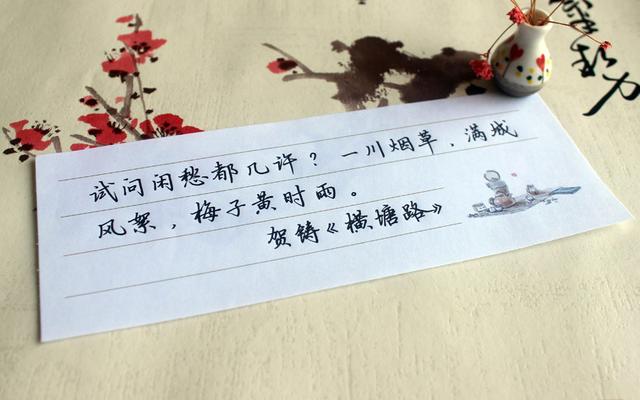 试问闲愁都几许？一川烟草，满城
风絮，梅子黄时雨。
贺铸《横塘路》